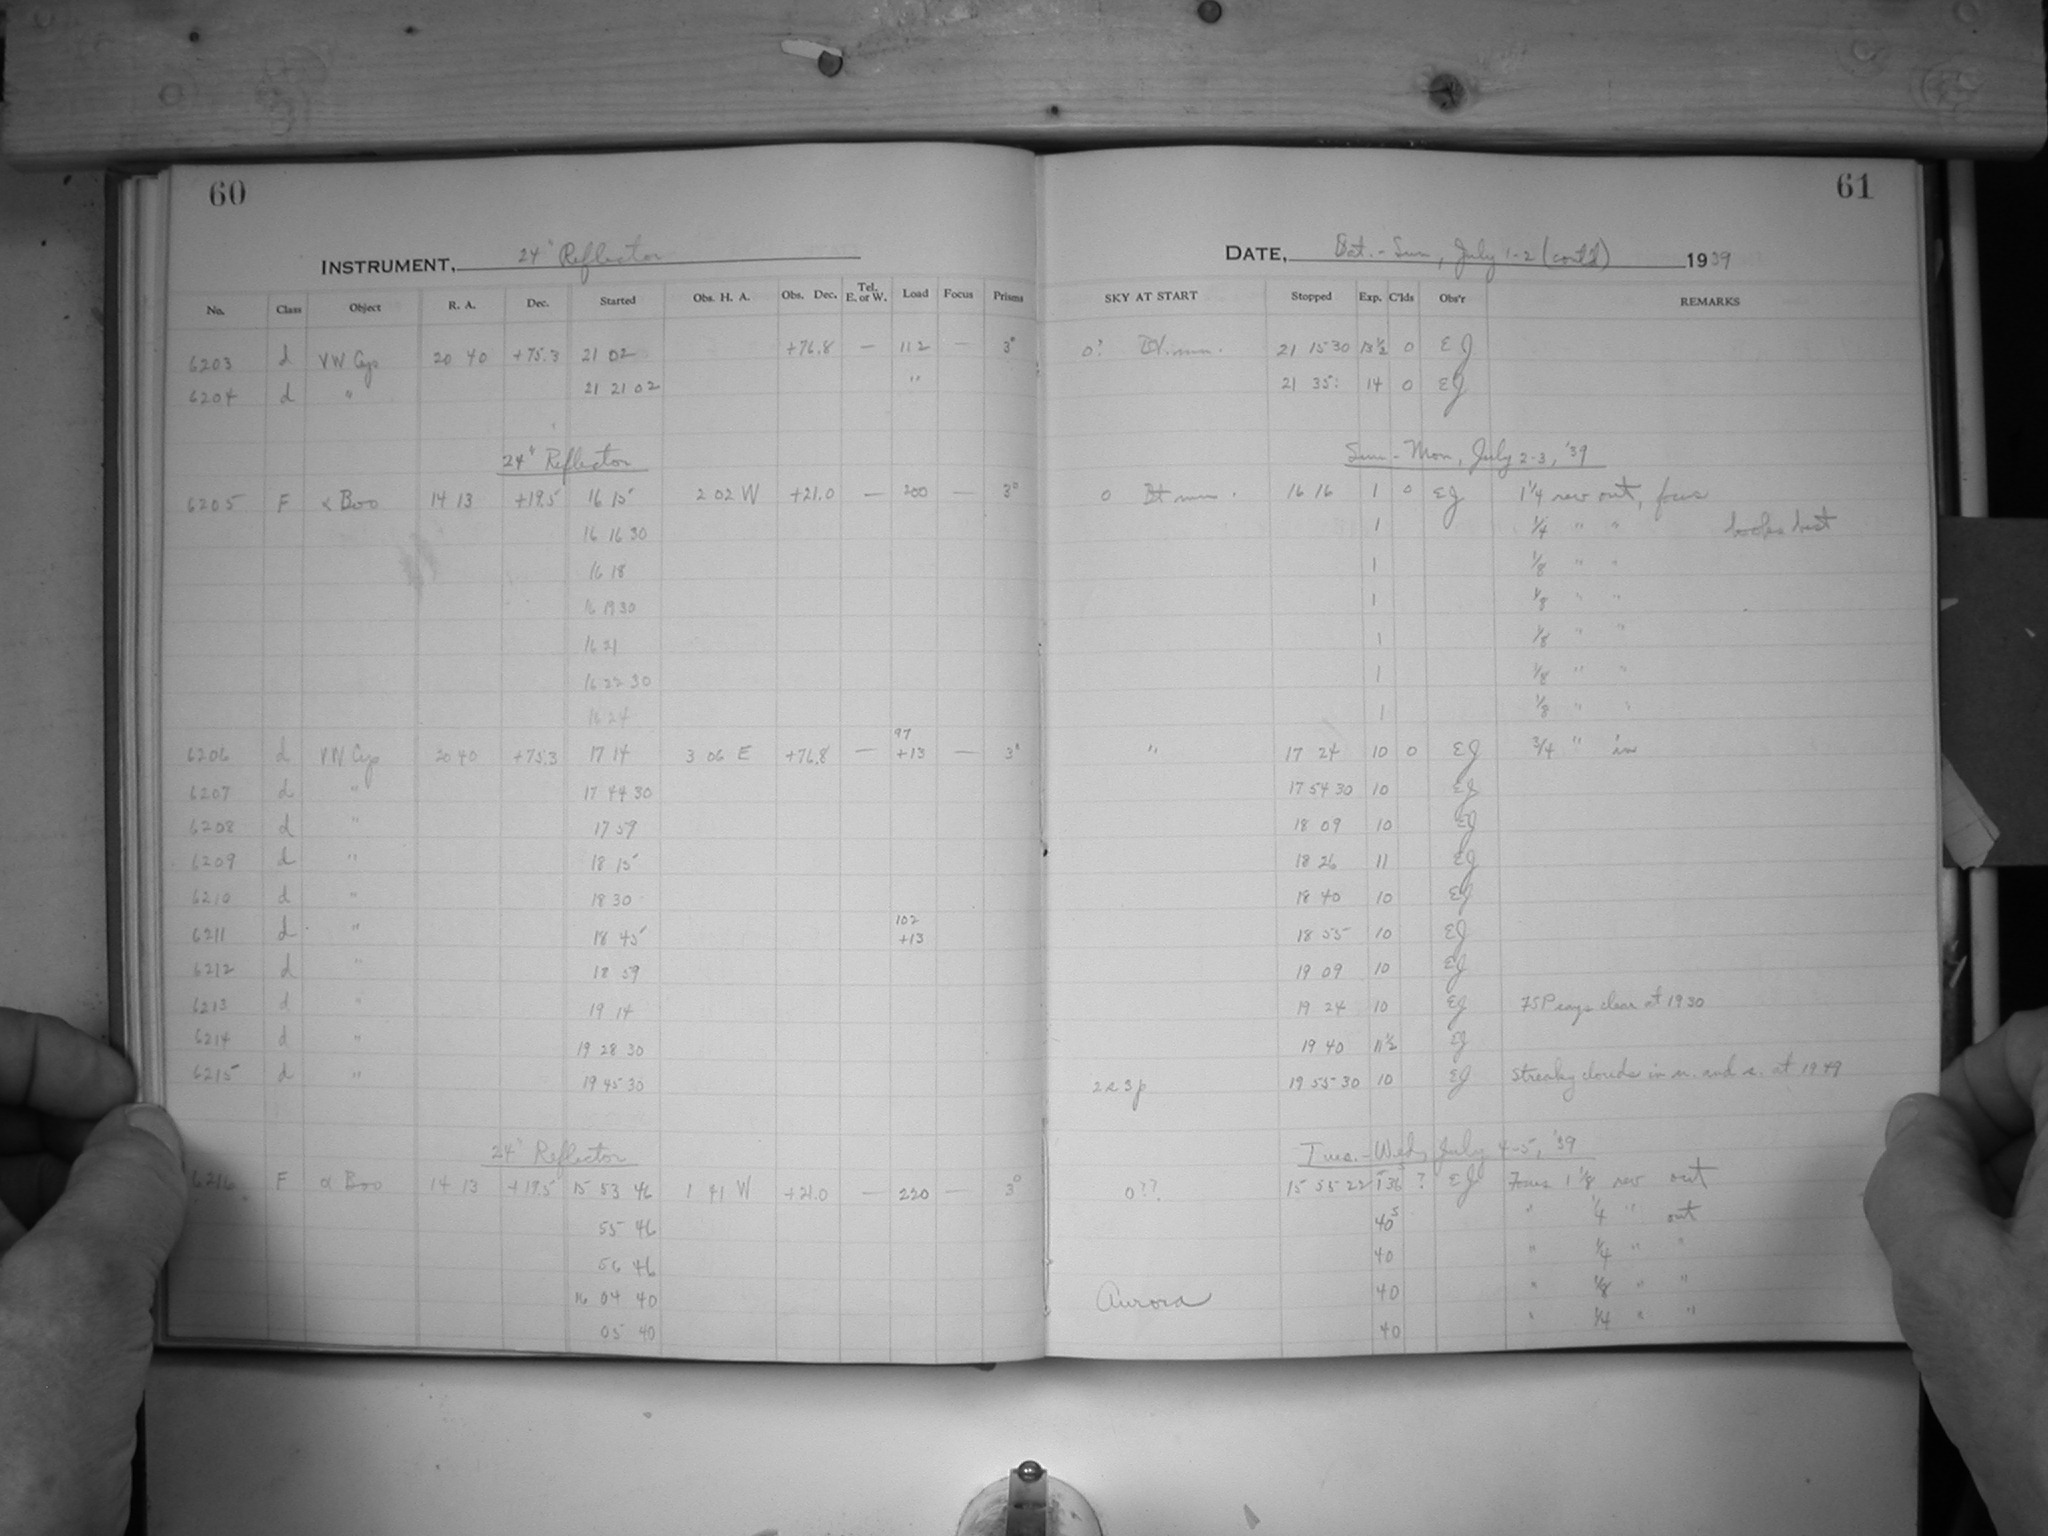 60
61
INSTRUMENT, 24" Reflector
DATE, Sat. - Sun, July 1-2 (cont'd) 1939
No. Class Object R. A. Dec. Started Obs. H. A. Obs. Dec. Tel. E. or W. Load Focus Prisms SKY AT START Stopped Exp. C'lds Obs'r REMARKS
6203 d VW Cep 20 40 +75.3 21 02 +76.8 — 112 3° 0? 21 15 30 13½ 0 EJ
6204 d " 21 21 02 " 21 35: 14 0 EJ
24" Reflector Sun - Mon, July 2-3, '39
6205 F α Boo 14 13 +19.5 16 15 2 02 W +21.0 — 200 — 3° 0 16 16 1 0 EJ 1¼ rev out, focus
16 16 30 1 ¼ " " looks best
16 18 1 ⅛ " "
16 19 30 1 ⅛ " "
16 21 1 ⅛ " "
16 22 30 1 ⅛ " "
16 24 1 ⅛ " "
6206 d VW Cep 20 40 +75.3 17 14 3 06 E +76.8 — 97 +13 — 3° " 17 24 10 0 EJ ¾ " in
6207 d " 17 44 30 17 54 30 10 EJ
6208 d " 17 59 18 09 10 EJ
6209 d " 18 15 18 26 11 EJ
6210 d " 18 30 18 40 10 EJ
6211 d " 18 45 102 +13 18 55 10 EJ
6212 d " 18 59 19 09 10 EJ
6213 d " 19 14 19 24 10 EJ FSP says clear at 19 30
6214 d " 19 28 30 19 40 11½ EJ
6215 d " 19 45 30 19 55 30 10 EJ Streaky clouds in n. and s. at 19 49
24" Reflector Tues. - Wed, July 4-5, '39
6216 F α Boo 14 13 +19.5 15 53 46 1 41 W +21.0 — 220 — 3° 0?? 15 55 22 1 36 ? EJ Focus 1⅛ rev out
55 46 40s " ¼ " out
56 46 40 " ¼ " "
16 04 40 Aurora 40 " ⅛ " "
05 40 40 " ¼ " "